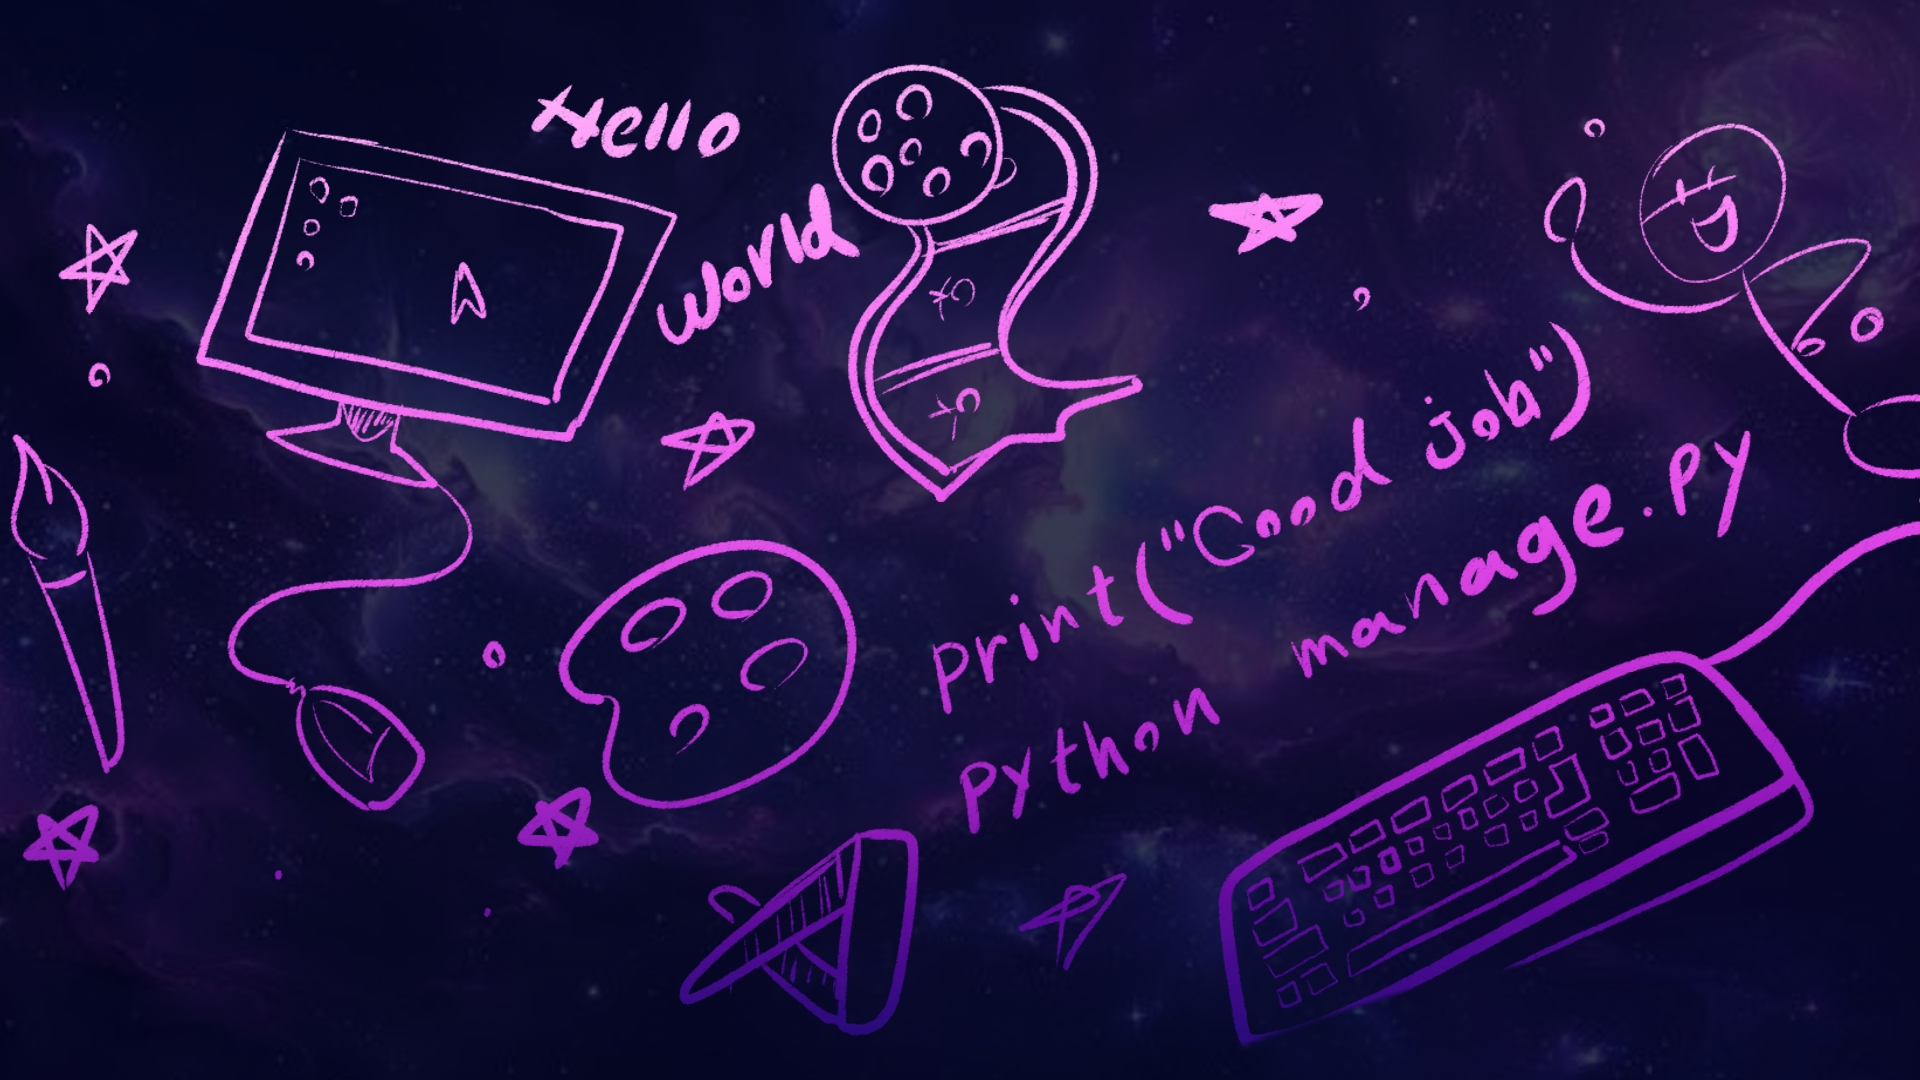 Hello
World
print("Good job")
Python manage.py